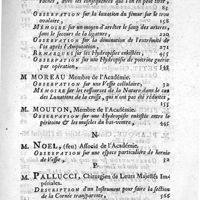 OBSERVATION sur la luxation du fémur sur le trou
ovalaire,
MÉMOIRE sur un moyen d'arrêter le sang des artères
sans le secours de la ligature,
OBSERVATION sur la diminution de l'extrémité de
l'os après l'Amputation, 271
REMARQUES sur les Hydropisies enkistées,
OBSERVATION sur une Hydropisie de poitrine guérie
par opération,
M. MOREAU Membre de l'Académie.
OBSERVATION sur une Vessie cellulaire,
MÉMOIRE sur les ressources de la Nature dans le cas
des Luxations de la cuisse, qui n'ont pas été réduites,
155
M. MOUTON, Membre de l'Académie.
OBSERVATION sur une Hydropisie enkistée entre le
péritoine & les muscles du bas-ventre,
N
M. NOEL, (feu) Associé de l'Académie.
OBSERVATION sur une espece particuliere de hernie
de Vessie,
P
M. PALLUCCI, Chirurgien de Leurs Majestés Im-
périales.
DESCRIPTION d'un Instrument pour faire la section
de la Cornée transparente,